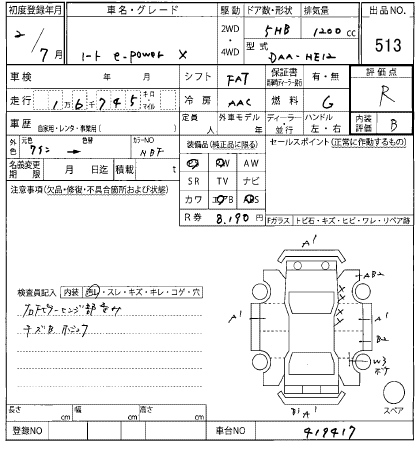 初度登録年月 車名・グレード 駆動 ドア数・形状 排気量 出品NO.
2/7月 ノート e-power X 2WD・4WD 5HB 1200cc 513
型式 DAA-HE12
車検 年 月 シフト FAT 保証書 有・無 評価点 R
走行 1万6千745 キロ マイル 冷房 AAC 燃料 G
車歴 自家用・レンタ・事業用( ) 定員 人 外車モデル 年 ディーラー・並行 ハンドル 左・右 内装評価 B
外色 元色 色替 カラーNO
装備品(純正品に限る) セールスポイント(正常に作動するもの)
名義変更期限 月 日迄 積載 t
AW
SR TV ナビ
注意事項(欠品・修復・不具合箇所および状態)
カワ
R券 8,190円
Fガラス トビ石・キズ・ヒビ・ワレ・リペア跡
A1
AB2
検査員記入 内装 ・スレ・キズ・キレ・コゲ・穴
X
X
X
A1 A1
B2
W3
B1 A1
スペア
長さ cm 幅 cm 高さ cm
登録NO 車台NO 419417